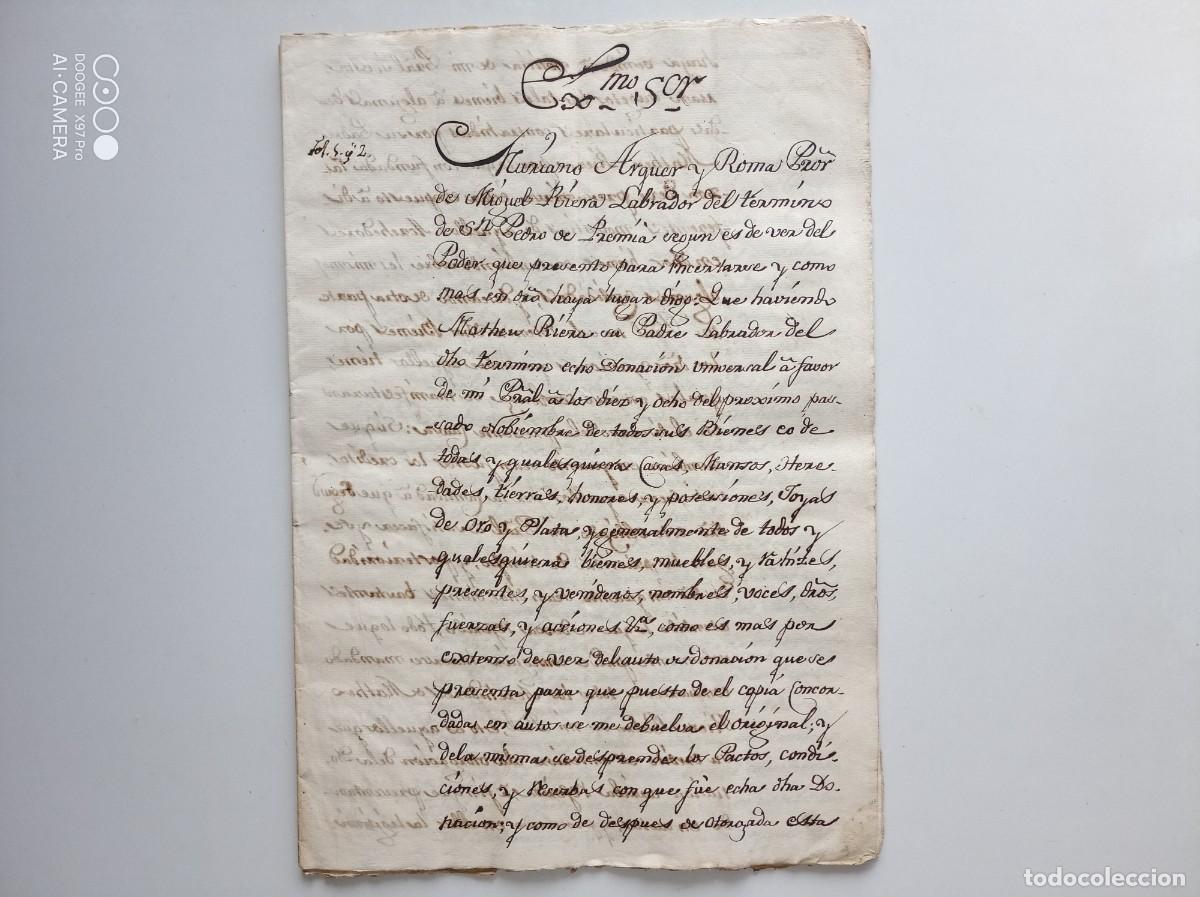 Exmo. Sor.
fol. 1. y 2.
Mariano Arquer y Roma Pror.
de Miguel Riera Labrador del termino
de Sn. Pedro de Premià segun es de ver del
Poder que presento para incertarse y como
mas en dro. haya lugar digo: Que haviendo
Matheu Riera su Padre Labrador del
dho termino echo Donación universal à favor
de mi Pral. à los diez y ocho del proximo pas-
sado Nobiembre de todos sus Bienes eo de
todas y qualesquiera Casas, Mansos, Here-
dades, tierras, honores, y posesiones, Joyas
de Oro y Plata, y generalmente de todos y
qualesquiera bienes, muebles, y rahizes,
presentes, y venideros, nombres, voces, dros.
fuerzas, y acciones &a. como es mas por
extenso de ver del auto de donación que se
presenta para que puesto de el copia Concor-
dada en autos se me debuelva el original; y
dela misma se desprende los Pactos, condi-
ciones, y reserbas con que fuè echa dha Do-
nacion; y como de despues de otorgada esta
DOOGEE X97Pro
AI·CAMERA
todocoleccion